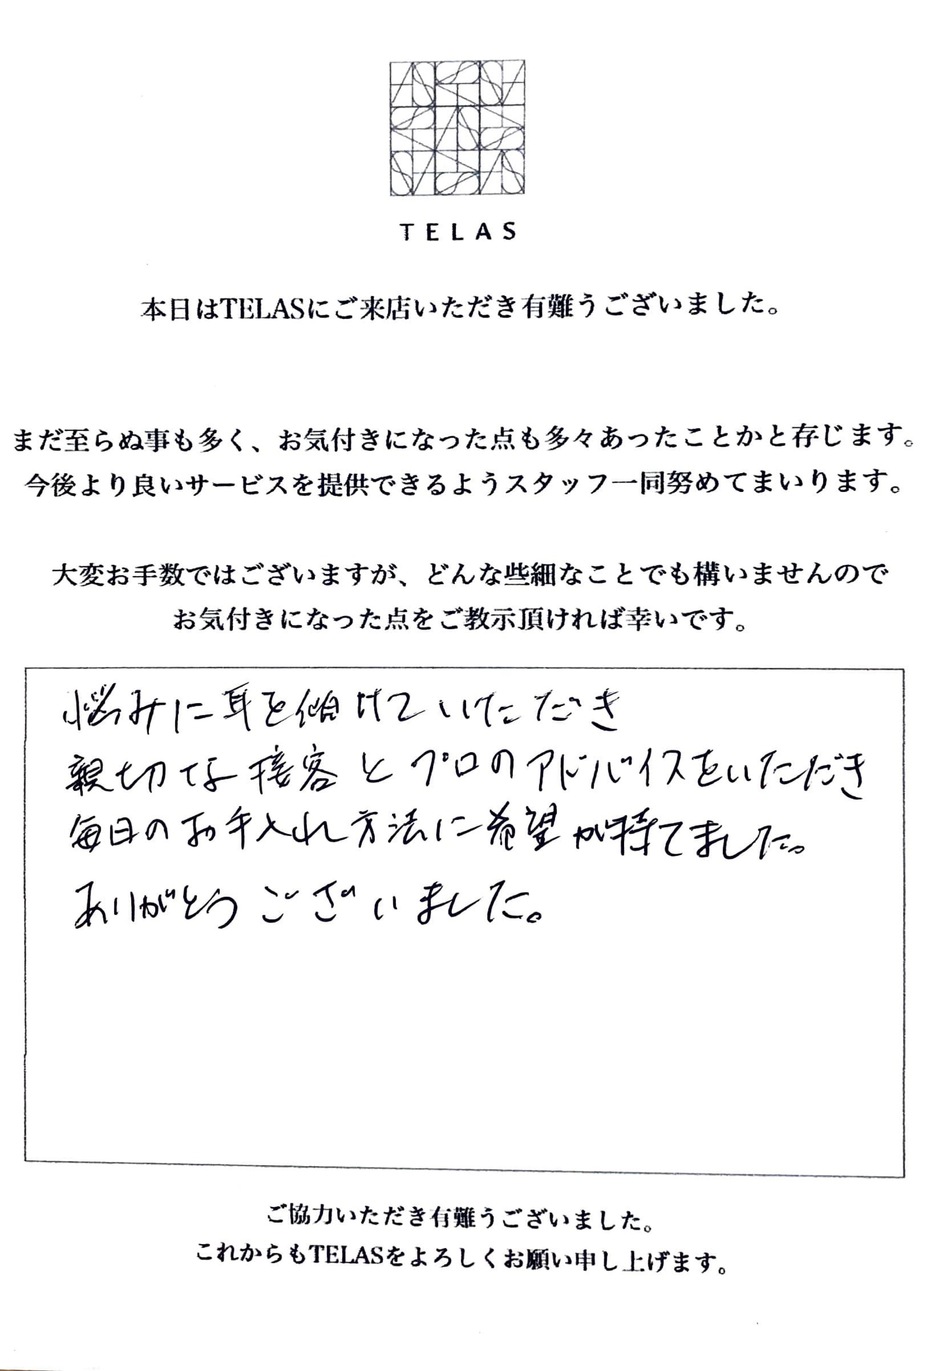 TELAS
本日はTELASにご来店いただき有難うございました。
まだ至らぬ事も多く、お気付きになった点も多々あったことかと存じます。
今後より良いサービスを提供できるようスタッフ一同努めてまいります。
大変お手数ではございますが、どんな些細なことでも構いませんので
お気付きになった点をご教示頂ければ幸いです。
悩みに耳を傾けていただき
親切な接客とプロのアドバイスをいただき
毎日のお手入れ方法に希望が持てました。
ありがとうございました。
ご協力いただき有難うございました。
これからもTELASをよろしくお願い申し上げます。